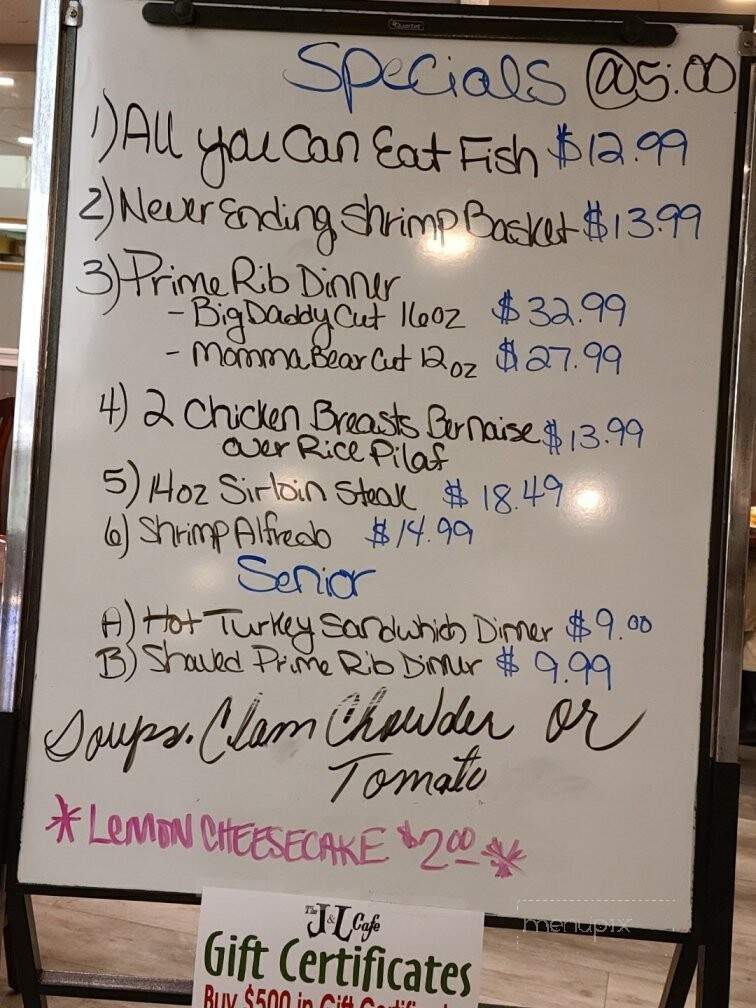 Quartet
Specials @5:00
1) All you Can Eat Fish $12.99
2) Never Ending Shrimp Basket $13.99
3) Prime Rib Dinner
- Big Daddy Cut 16oz $32.99
- Momma Bear Cut 12oz $27.99
4) 2 Chicken Breasts Bernaise $13.99
over Rice Pilaf
5) 14oz Sirloin Steak $18.49
6) Shrimp Alfredo $14.99
Senior
A) Hot Turkey Sandwhich Dinner $9.00
B) Shaved Prime Rib Dinner $9.99
Soups. Clam Chowder or
Tomato
*LEMON CHEESECAKE $2.00*
The J&L Cafe
Gift Certificates
Buy $500 in Gift
menupix